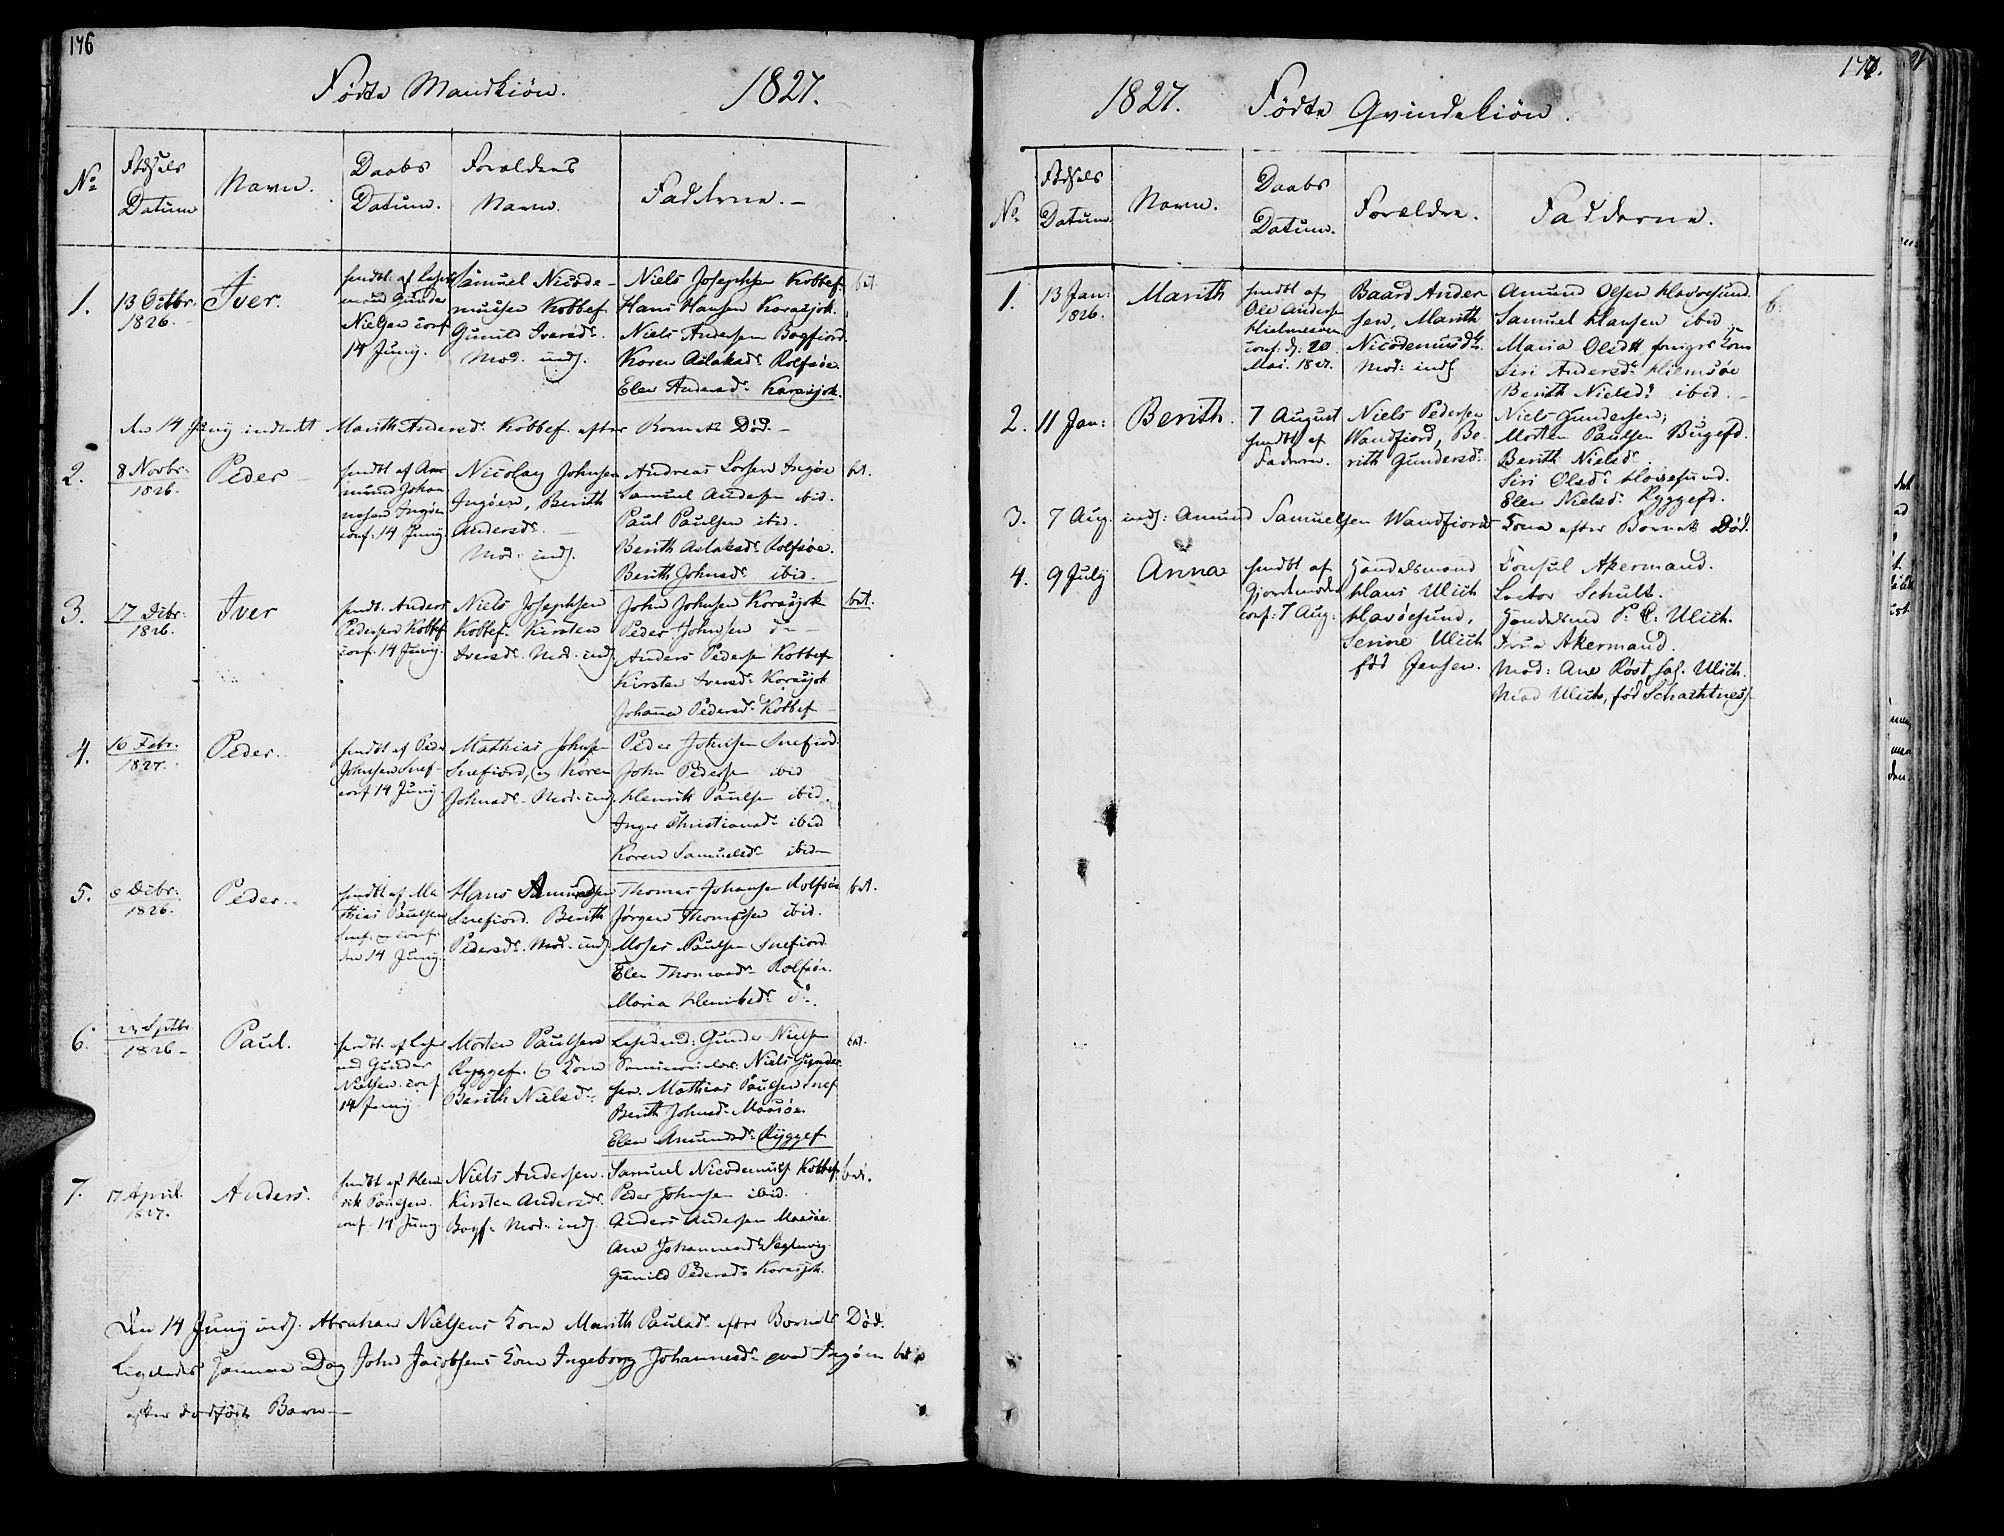 176
Fødte Mandkiøn. 1827.
No
Fødsels Datum
Navn.
Daabs Datum.
Forældrens Navn.
Fadderne. -
1.
13 Octbr. 1826.
Iver.
hmdbt. af Lense
mand Gunder
Nielsen conf.
14 Junij.
Samuel Nicode-
mussen Kobbef
Gunild Iversdr.
Mod. indl.
Niels Josephsen Kobbef
Hans Hansen Korasjok.
Niels Andersen Bogfiord
Karen Aslaksdr. Rolfsøe.
Elen Andersdr. Karasjok.
bet.
den 14 Junij indledt Marith Andersdr. Kobbef. efter Barnets Død. -
2.
8 Novbr. 1826.
Peder -
hmdbt af Am
mund Johan
nesen Ingøen
conf. 14 Junij.
Nicolay Johnsen
Ingøen, Berith
Andersdr.
Mod. indl.
Andreas Larsen Ingøe
Samuel Andersen ibid.
Paul Paulsen ibid.
Berith Aslaksdr. Rolfsøe.
Berith Johnsdr. ibid.
bet.
3.
17 Decbr. 1826.
Iver
hmdt. Anders
Pedersen Kobbef.
conf. 14 Junij.
Niels Josephsen
Kobbef. Kirsten
Iversdr. Mod. indl.
John Johnsen Korasjok
Peder Johnsen do -
Anders Pedersen Kobbef
Kirsten Iversdr. Korasjok
Johanna Pedersdr. Kobbef
bet.
4.
16 Febr. 1827.
Peder.
hmdbt af Peder
Johnsen Snef-
conf 14 Junij
Mathias Johnsen
Snefiord, og Karen
Johnsdr. Mod. indl.
Peder Johnsen Snefiord.
John Pedersen ibid
Henrik Paulsen ibid.
Inger Christiansdr. ibid
Karen Samuelsdr. ibid -
5.
8 Decbr. 1826.
Peder.
hmdbt af Ma
thias Paulsen
Snef. conf.
den 14 Junij.
Hans Amundsen
Snefiord. Berith
Pedersdr. Mod. indl.
Thomas Johansen Rolfsøe
Jørgen Thomesen ibid.
Moses Paulsen Snefiord
Elen Thomasdr. Rolfsøe.
Maria Henriksdr. do.
bet.
6.
23 Septbr. 1826 -
Paul.
hmdbt. af Lense
md Gunder
Nielsen. conf
14 Junij
Morten Paulsen
Ryggef. & Kona
Berith Nielsdr.
Lensmd: Gunder Nielsen
Niels Gunder
sen. Mathias Paulsen Snef
Berith Johnsdr. Maasøe.
Elen Amundsdr. Ryggef
bet.
7.
17 April. 1827.
Anders.
hmdbt af Hen
rik Paulsen.
conf. 14 Junij
Niels Andersen.
Kirsten Andersdr.
Bogf. Mod. indl.
Samuel Nicodemusf Kobbef
Peder Johnsen ibid.
Anders Andersen Maasøe.
Ane Johannesdr. Seglevig.
Gunild Pedersdr. Korasjok.
bet.
Den 14 Junij indl. Abraham Nielsens Kona Marith Paulsdr. efter Barnets Død.
Ligeledes samme Dag John Jacobsens Kona Ingeborg Johannesdr. paa Ingøen bet
efter dødfødt Barn -
177.
1827. Fødte Qvindekiøn.
No
Fødsels Datum.
Navn.
Daabs Datum.
Forældre.
Fadderne.
1.
13 Jan: 1826.
Marith
hmdbt af
Ole Andersen
Hielmesøen
conf. d. 20
Mai. 1827.
Baard Ander
sen, Marith
Nicodemusdr.
Mod: indl
Amund Olsen Havøesund.
Samuel Hansen ibid
Maria Olsdtr
Siri Andersdr. Hiemsøe
Berith Nielsdr. ibid. -
b.
2.
11 Jan:
Berith.
7 August
hmdbt af
Faderen.
Niels Pedersen
Wandfiord, Be-
rith Gundersdr.
Niels Gundersen;
Morten Paulsen Bugefd.
Berith Nielsdr.
Siri Olsdr. Havøesund.
Elen Nielsdr. Ryggefd.
3. 7 Aug. indl: Amund Samuelsen Wandfiords Kona efter Barnets Død.
4.
9 July
Anna
hmdbt af
Gjordemoder
conf: 7 Aug:
Handelsmand
Hans Ulich
Havøesund,
Serine Ulich
fød Jensen.
Consul Akermand.
Doctor Schult.
Handelsmd P. C. Ulich.
Frue Akermand.
Mad: Ane Røst, sal. Ulich.
Mad Ulich, fød Schachtnes.